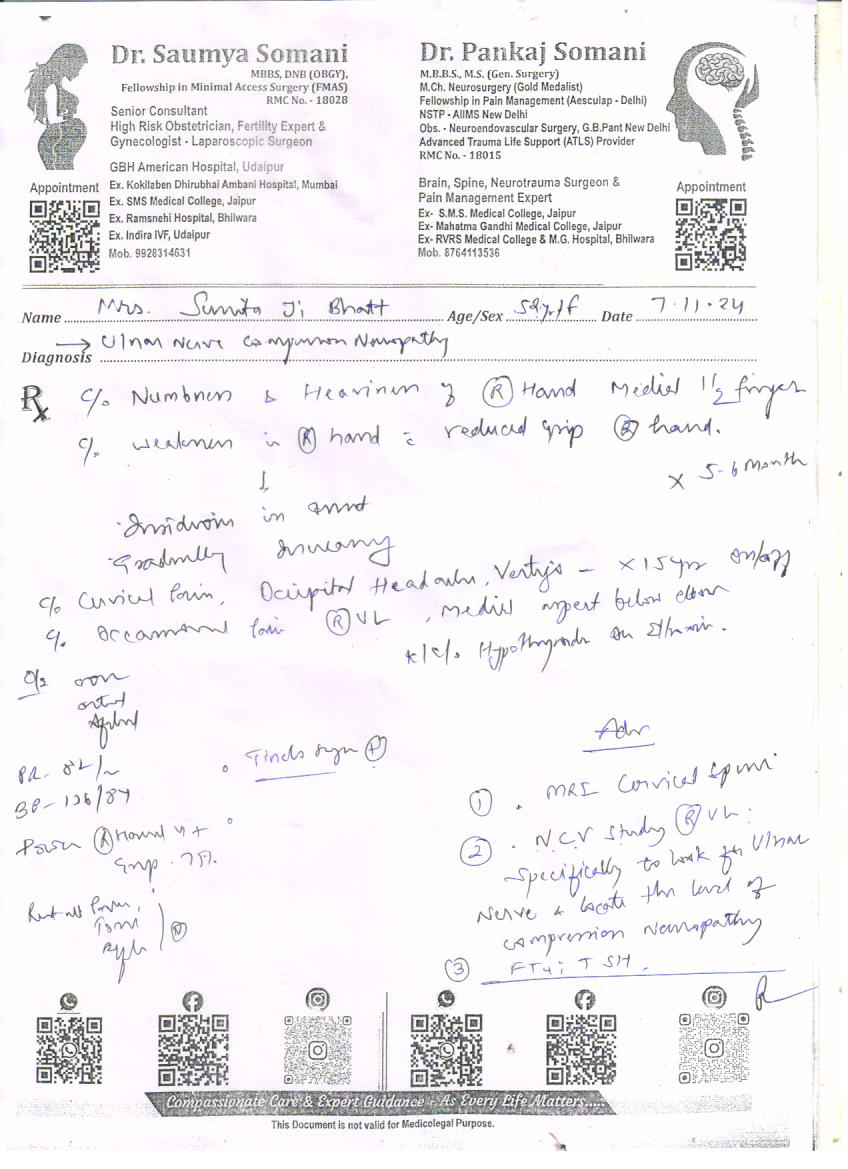 Dr. Saumya Somani
MBBS, DNB (OBGY),
Fellowship in Minimal Access Surgery (FMAS)
RMC No. - 18028
Senior Consultant
High Risk Obstetrician, Fertility Expert &
Gynecologist - Laparoscopic Surgeon
GBH American Hospital, Udaipur
Ex. Kokilaben Dhirubhai Ambani Hospital, Mumbai
Ex. SMS Medical College, Jaipur
Ex. Ramsnehi Hospital, Bhilwara
Ex. Indira IVF, Udaipur
Mob. 9928314631
Appointment
Dr. Pankaj Somani
M.B.B.S., M.S. (Gen. Surgery)
M.Ch. Neurosurgery (Gold Medalist)
Fellowship in Pain Management (Aesculap - Delhi)
NSTP - AIIMS New Delhi
Obs. - Neuroendovascular Surgery, G.B.Pant New Delhi
Advanced Trauma Life Support (ATLS) Provider
RMC No. - 18015
Brain, Spine, Neurotrauma Surgeon &
Pain Management Expert
Ex- S.M.S. Medical College, Jaipur
Ex- Mahatma Gandhi Medical College, Jaipur
Ex- RVRS Medical College & M.G. Hospital, Bhilwara
Mob. 8764113536
Appointment
Name Mrs. Sunita Ji Bhatt Age/Sex Date 7.11.24
Diagnosis → Ulnar Nerve Compression Neuropathy
Rx c/o Numbness & Heaviness of (R) Hand Medial 1 1/2 finger
c/o weakness in (R) hand c reduced grip (R) hand.
x 5-6 Month
↓
Insidious in onset
Gradually Increasing
c/o Cervical Pain, Occipital Headache, Vertigo - x 15 yrs on/off
c/o occasional Pain (R) UL, medial aspect below elbow
k/c/o Hypothyroid on
O/E
PR - 82/
BP - 136/84
Power (R) Hand 4+
Grip - 75%
Rest all Power,
Tone
(N)
Tinels sign (+)
Adv
① MRI Cervical Spine
② NCV Study (R) UL:
Specifically to look for Ulnar
Nerve & locate the level of
compression Neuropathy
③ FT4; TSH.
Compassionate Care & Expert Guidance - As Every Life Matters.....
This Document is not valid for Medicolegal Purpose.